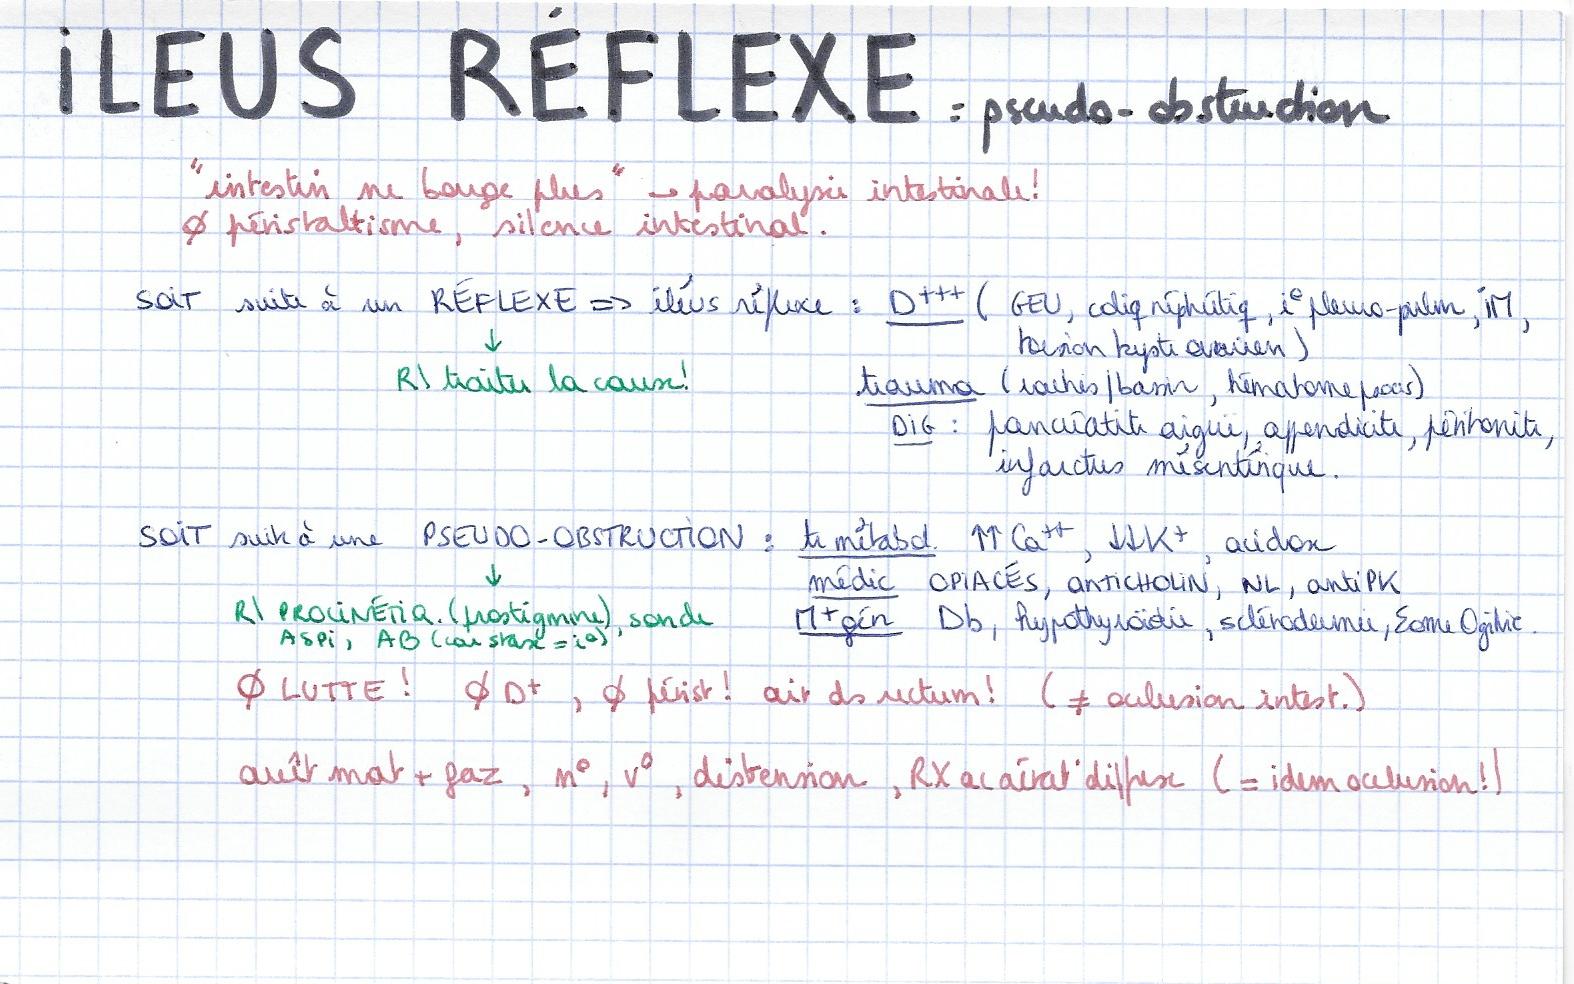 iLEUS RÉFLEXE = pseudo-obstruction
"intestin ne bouge plus" → paralysie intestinale!
Ø péristaltisme, silence intestinal.
SOiT suite à un RÉFLEXE => iléus réflexe : D+++ ( GEU, coliq néphrétiq, i° pleuro-pulm, iM,
torsion kyste ovarien )
↓
R\ traiter la cause!
trauma (rachis/bassin, hématome psoas)
DiG : pancréatite aiguë, appendicite, péritonite,
infarctus mésentérique.
SOiT suite à une PSEUDO-OBSTRUCTiON : tr métabol. ↑↑ Ca++, ↓↓K+, acidose
↓
médic OPiACÉS, ANTiCHOLiN, NL, antiPK
R\ PROCiNÉTiQ. (prostigmine), sonde
M+ gén Db, hypothyroïdie, sclérodermie, Σome Ogilvie.
ASPi, AB (car stase = i°)
Ø LUTTE! Ø D+, Ø périst! air ds rectum! (≠ occlusion intest.)
arrêt mat + gaz, n°, v°, distension, RX ac aérat° diffuse (= idem occlusion!)